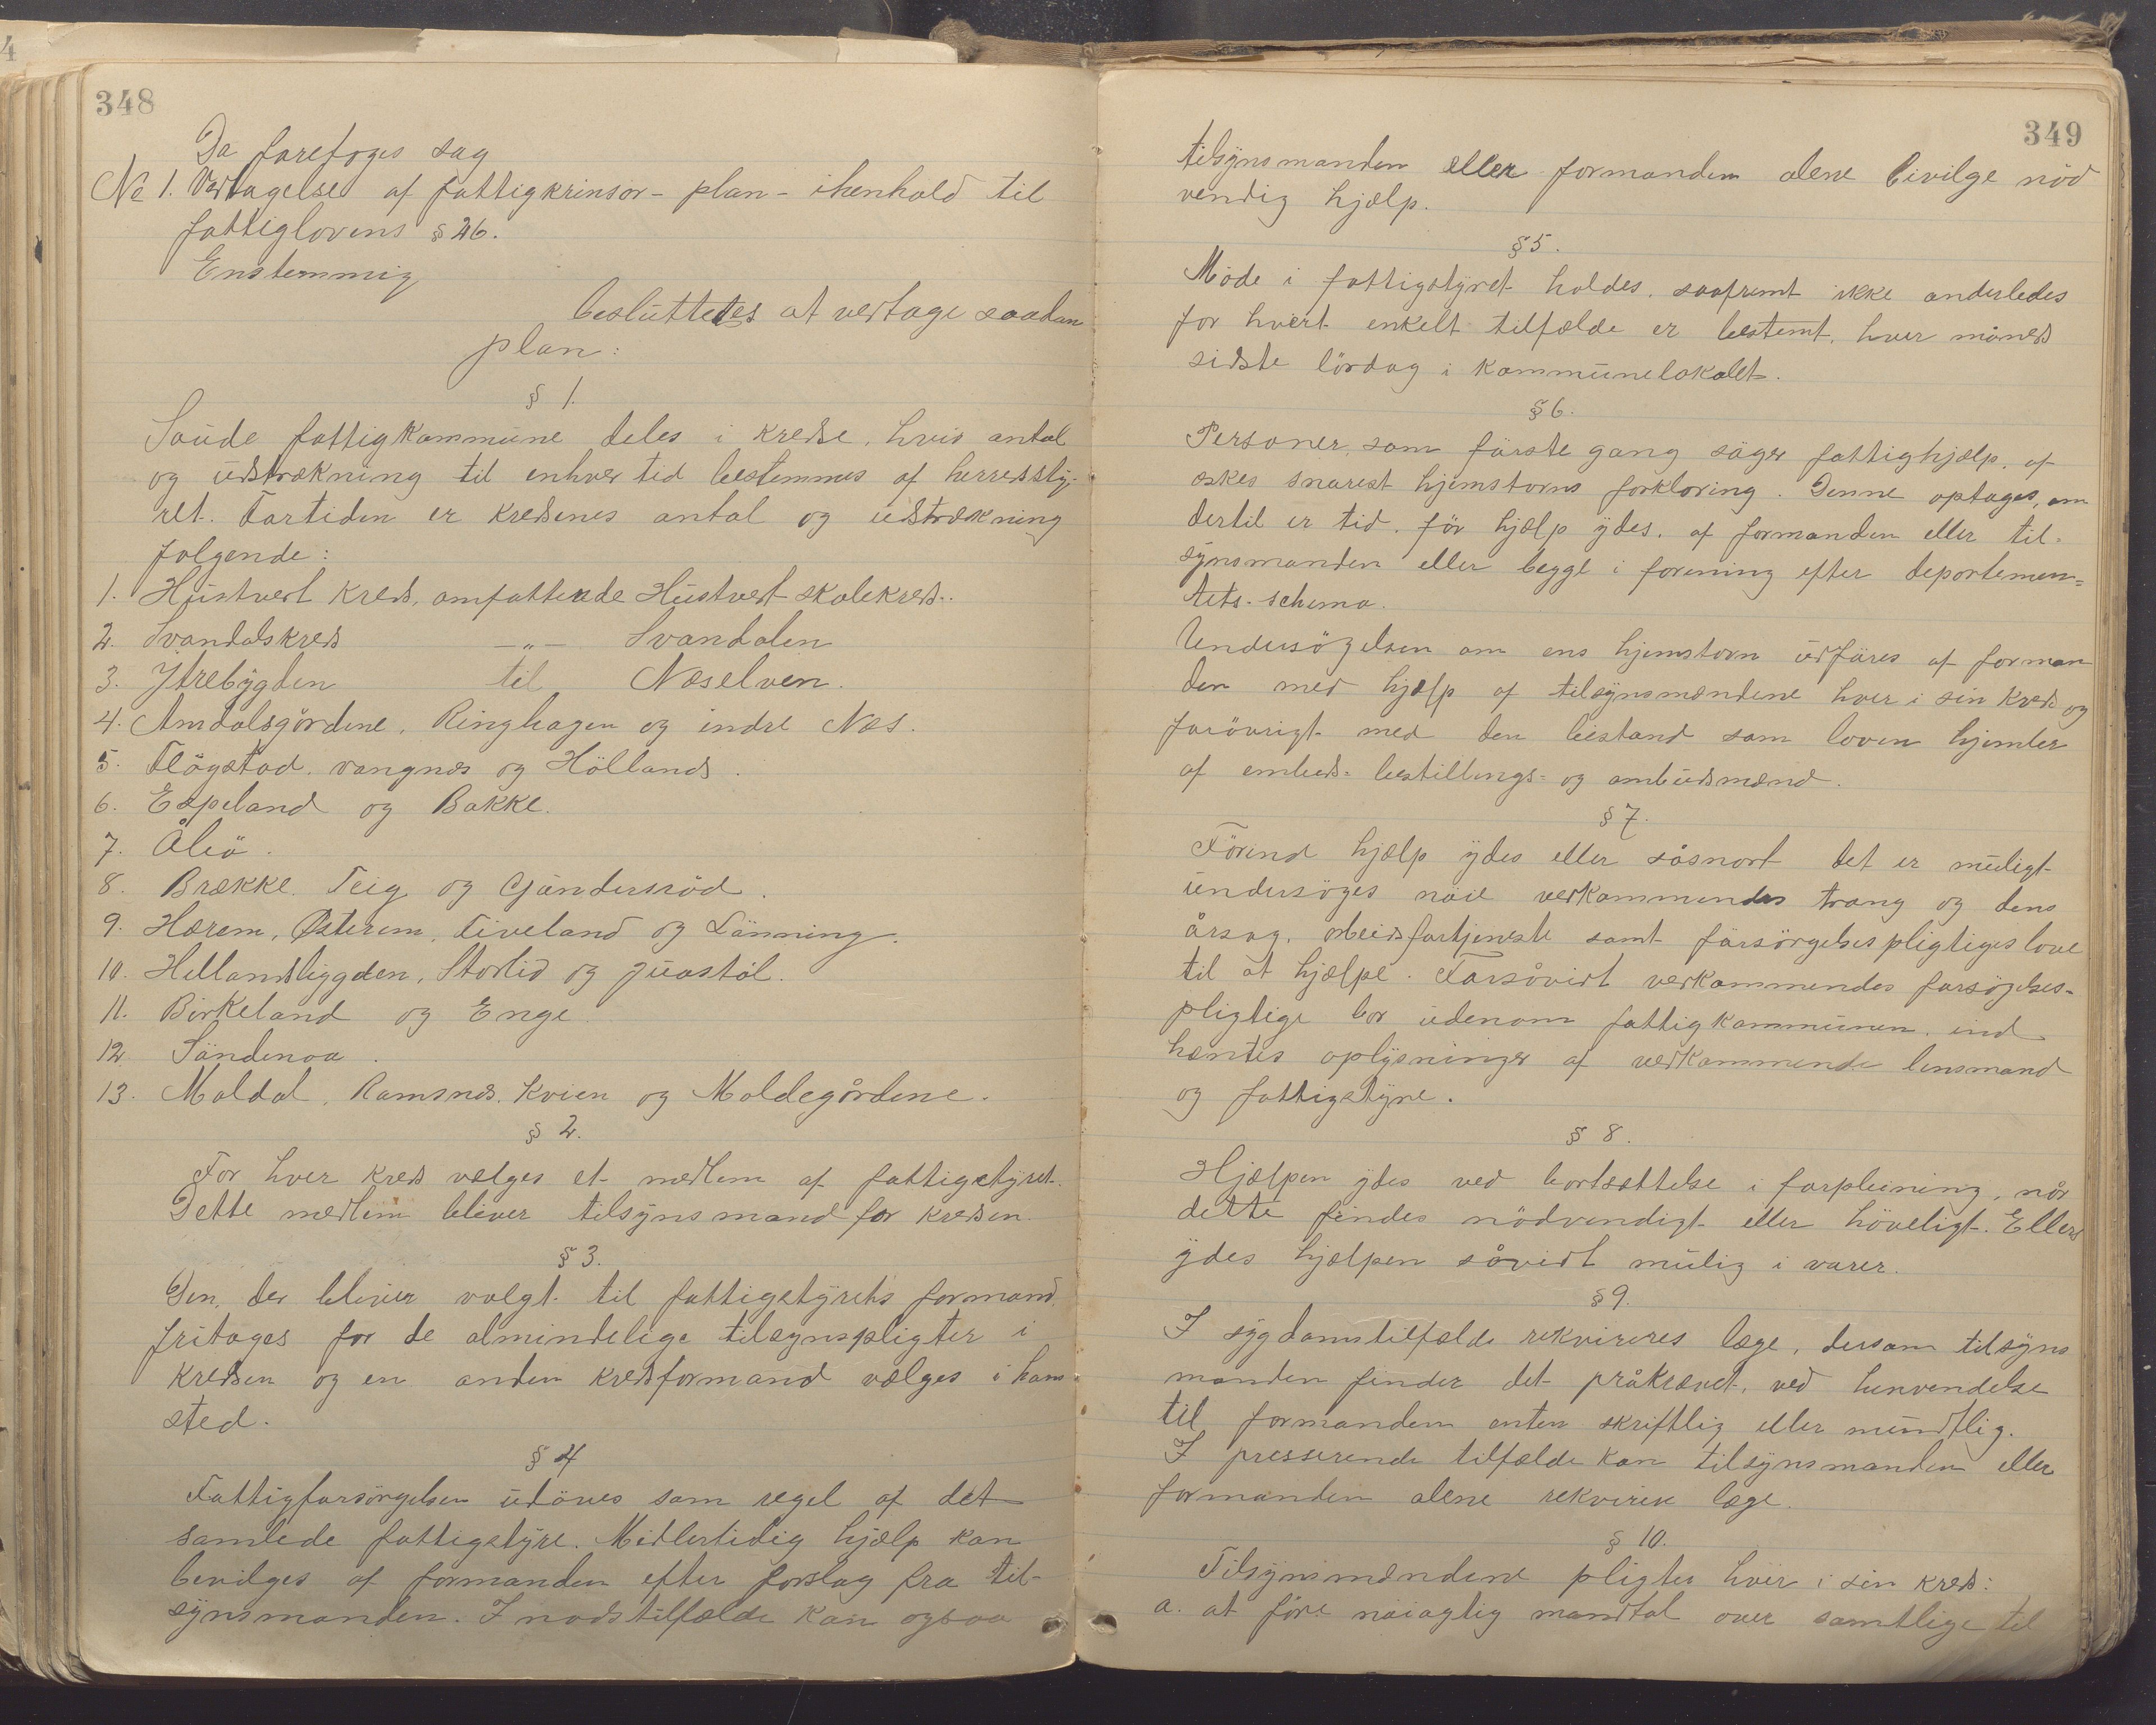 348
Da foretoges sag
No 1. Vedtagelse af fattigkrinsor - plan - ihenhold til
fattiglovens § 26.
Enstemmig
besluttedes at vedtage saadan
plan:
§ 1.
Saude fattigkommune deles i kredse, hvis antal
og udstrækning til enhver tid bestemmes af herredssty-
ret. Fortiden er kredsenes antal og udstrækning
folgende:
1. Hustvedt kreds, omfattende Hustvedt skolekreds.
2. Svandalskreds —„— Svandalen
3. Ytrebygden til Næselven.
4. Amdalsgördene, Ringhagen og indre Næs.
5. Flögstad, vangnæs og Hölland.
6. Espeland og Bakke.
7. Åbö.
8. Brække, Teig og Gunderssöd.
9. Hærem, Østerem, Tiveland og Lönning.
10. Hellandsbygden, Storlid og Juvastöl.
11. Birkeland og Enge.
12. Söndenaa.
13. Maldal, Ramsnæs, Kvien og Moldegårdene.
§ 2.
For hver kreds vælges et medlem af fattigstyret.
Dette medlem bliver tilsynsmand for kredsen.
§ 3.
Den, der bliver valgt til fattigstyrets formand,
fritages for de almindelige tilsynspligter i
kredsen og en anden kredsformand vælges i hans
sted.
§ 4
Fattigforsörgelsen udöves som regel af det
samlede fattigstyre. Midlertidig hjælp kan
bevilges af formanden efter forslag fra til-
synsmanden. I nodstilfælde kan ogsaa
349
tilsynsmanden eller formanden alene bevilge nöd
vendig hjælp.
§ 5.
Möde i fattigstyret holdes, saafremt ikke anderledes
for hvert enkelt tilfælde er bestemt, hver måneds
sidste lördag i kommunelokalet.
§ 6.
Personer, som förste gang söger fattighjælp, af
æskes snarest hjemstavns forklaring. Denne optages, om
dertil er tid, för hjælp ydes, af formanden eller til-
synsmanden eller begge i forening efter departemen=
tets- schema.
Undersögelsen om ens hjemstavn udföres af forman
den med hjælp af tilsynsmændene hver i sin kreds og
forövrigt med den bistand som loven hjemler
af embeds= bestillings= og ombudsmænd.
§ 7.
Förend hjælp ydes eller såsnart det er muligt
undersöges nöie vedkommendes trang og dens
årsag, arbeidsfortjeneste samt försörgelsespligtiges love
til at hjælpe. Forsåvidt vedkommendes forsögelses-
pligtige bor udenom fattigkommunen, ind
hæntes oplysninger af vedkommende lensmand
og fattigstyre.
§ 8.
Hjælpen ydes ved bortsættelse i forpleining, når
dette findes nödvendigt eller höveligt. Ellers
ydes hjælpen såvidt mulig i varer.
§ 9.
I sygdomstilfælde rekvireres læge, dersom tilsyns
manden finder det påkrævet, ved henvendelse
til formanden enten skriftlig eller mundtlig.
I presserende tilfælde kan tilsynsmanden eller
formanden alene rekvirere læge.
§ 10.
Tilsynsmændene pligter hver i sin kreds:
a. at före nöiagtig mandtal over samtlige til